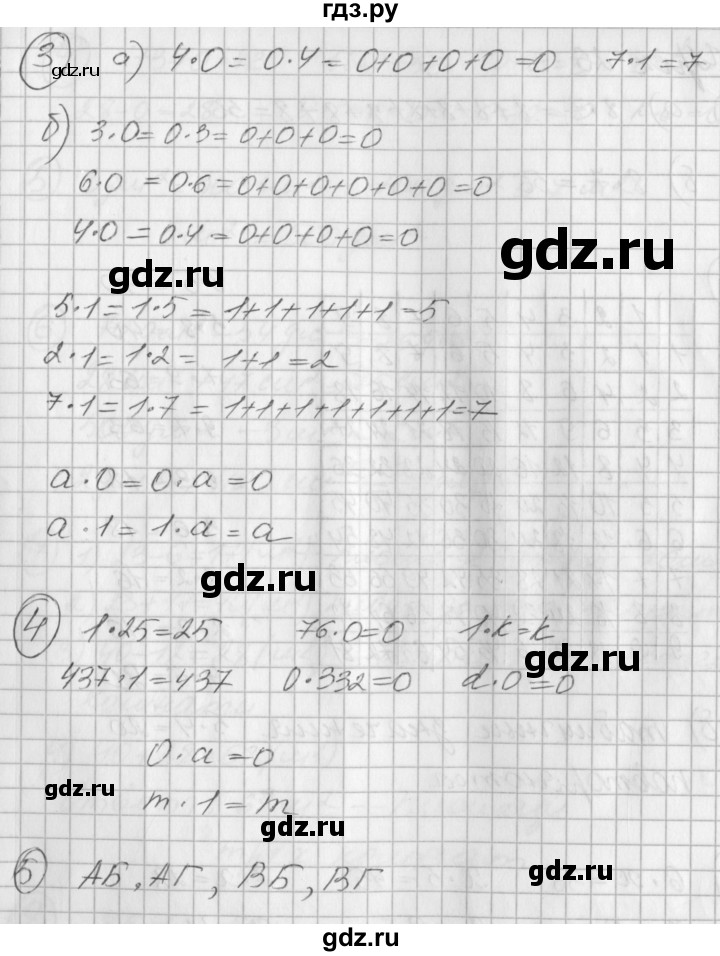 гдз.ру
3 а) 4·0=0·4=0+0+0+0=0 7·1=7
б) 3·0=0·3=0+0+0=0
6·0=0·6=0+0+0+0+0+0=0
gdz.ru
4·0=0·4=0+0+0+0=0
gdz.ru
5·1=1·5=1+1+1+1+1=5
2·1=1·2=1+1=2
7·1=1·7=1+1+1+1+1+1+1=7
а·0=0·а=0
а·1=1·а=а
gdz.ru
4 1·25=25 76·0=0 1·k=k
gdz.ru
437·1=437 0·332=0 d·0=0
0·а=0
gdz.ru
m·1=m
gdz.ru
5 АБ, АГ, ВБ, ВГ
gdz.ru
gdz.ru